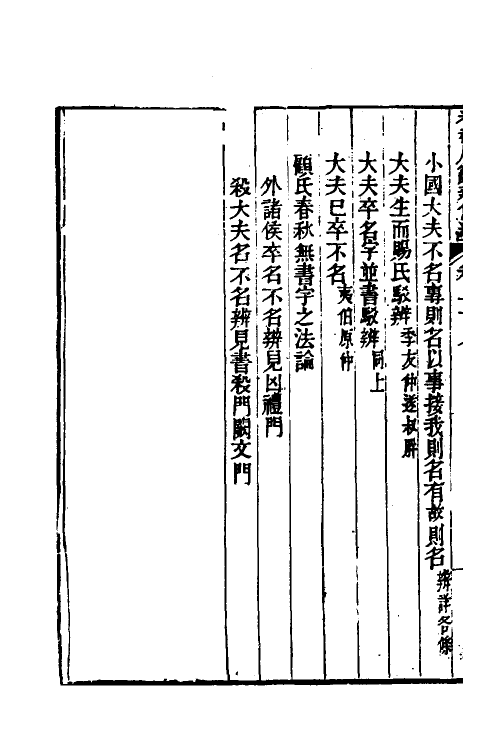 小國大夫不名專則名以事接我則名有故則名辨詳各條
大夫生而賜氏駁辨季友仲遂叔肸
大夫卒名字並書駁辨同上
大夫已卒不名夷伯原仲
顧氏春秋無書字之法論
外諸侯卒名不名辨見凶禮門
殺大夫名不名辨見書殺門闕文門